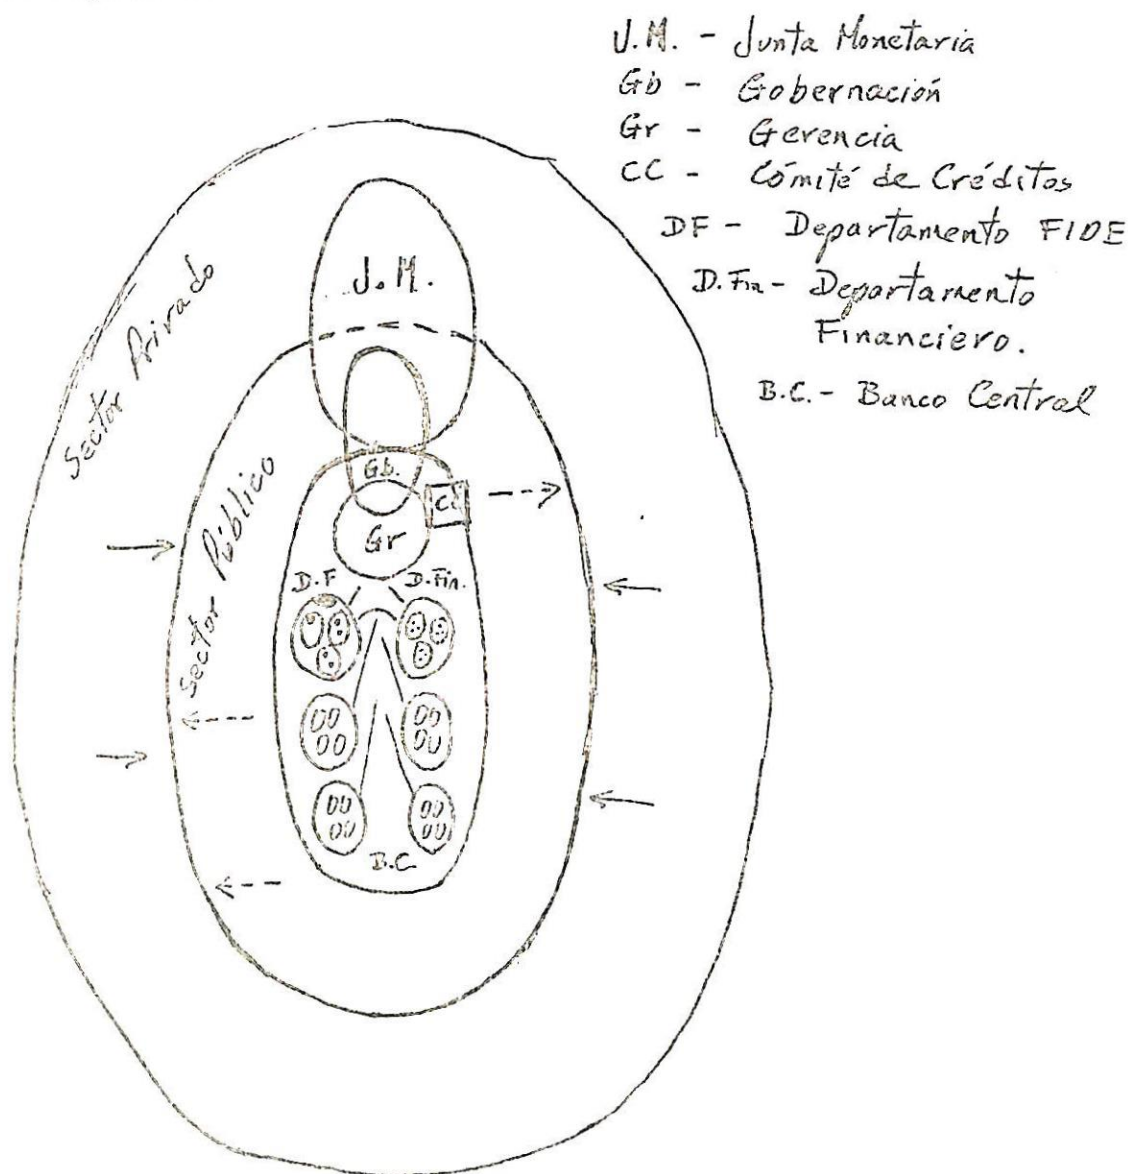 J.M. - Junta Monetaria
Gb - Gobernación
Gr - Gerencia
CC - Cómité de Créditos
DF - Departamento FIDE
D.Fin - Departamento
Financiero.
B.C. - Banco Central
Sector Privado
J.M.
Sector Público
Gb.
CC
Gr
D.F
D.Fin.
B.C